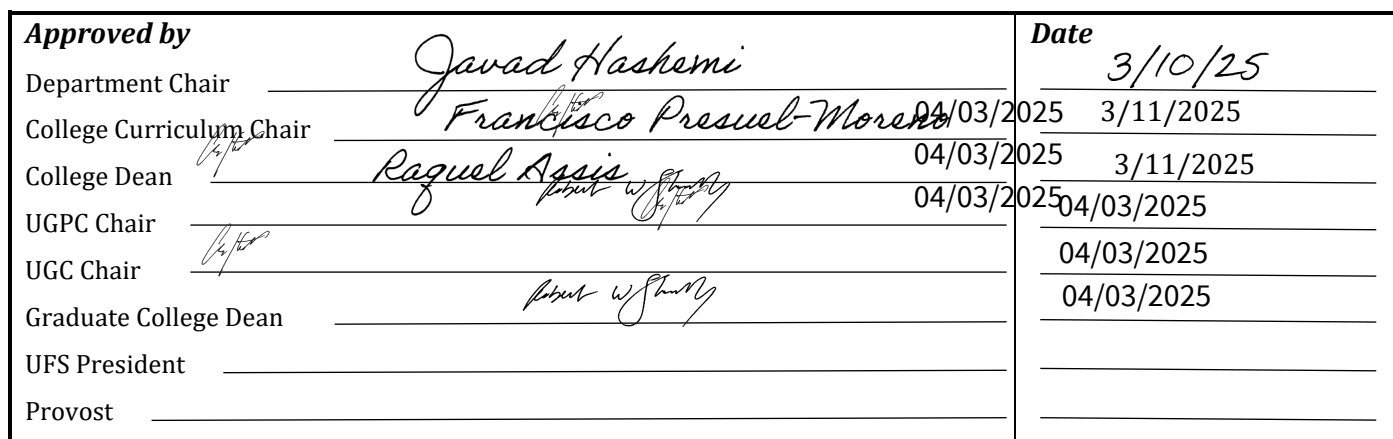 Approved by Date
Department Chair Javad Hashemi 3/10/25
College Curriculum Chair Francisco Presuel-Moreno 04/03/2025 3/11/2025
College Dean Raquel Assis 04/03/2025 3/11/2025
UGPC Chair Robert W 04/03/2025 04/03/2025
UGC Chair 04/03/2025
Graduate College Dean Robert W 04/03/2025
UFS President
Provost